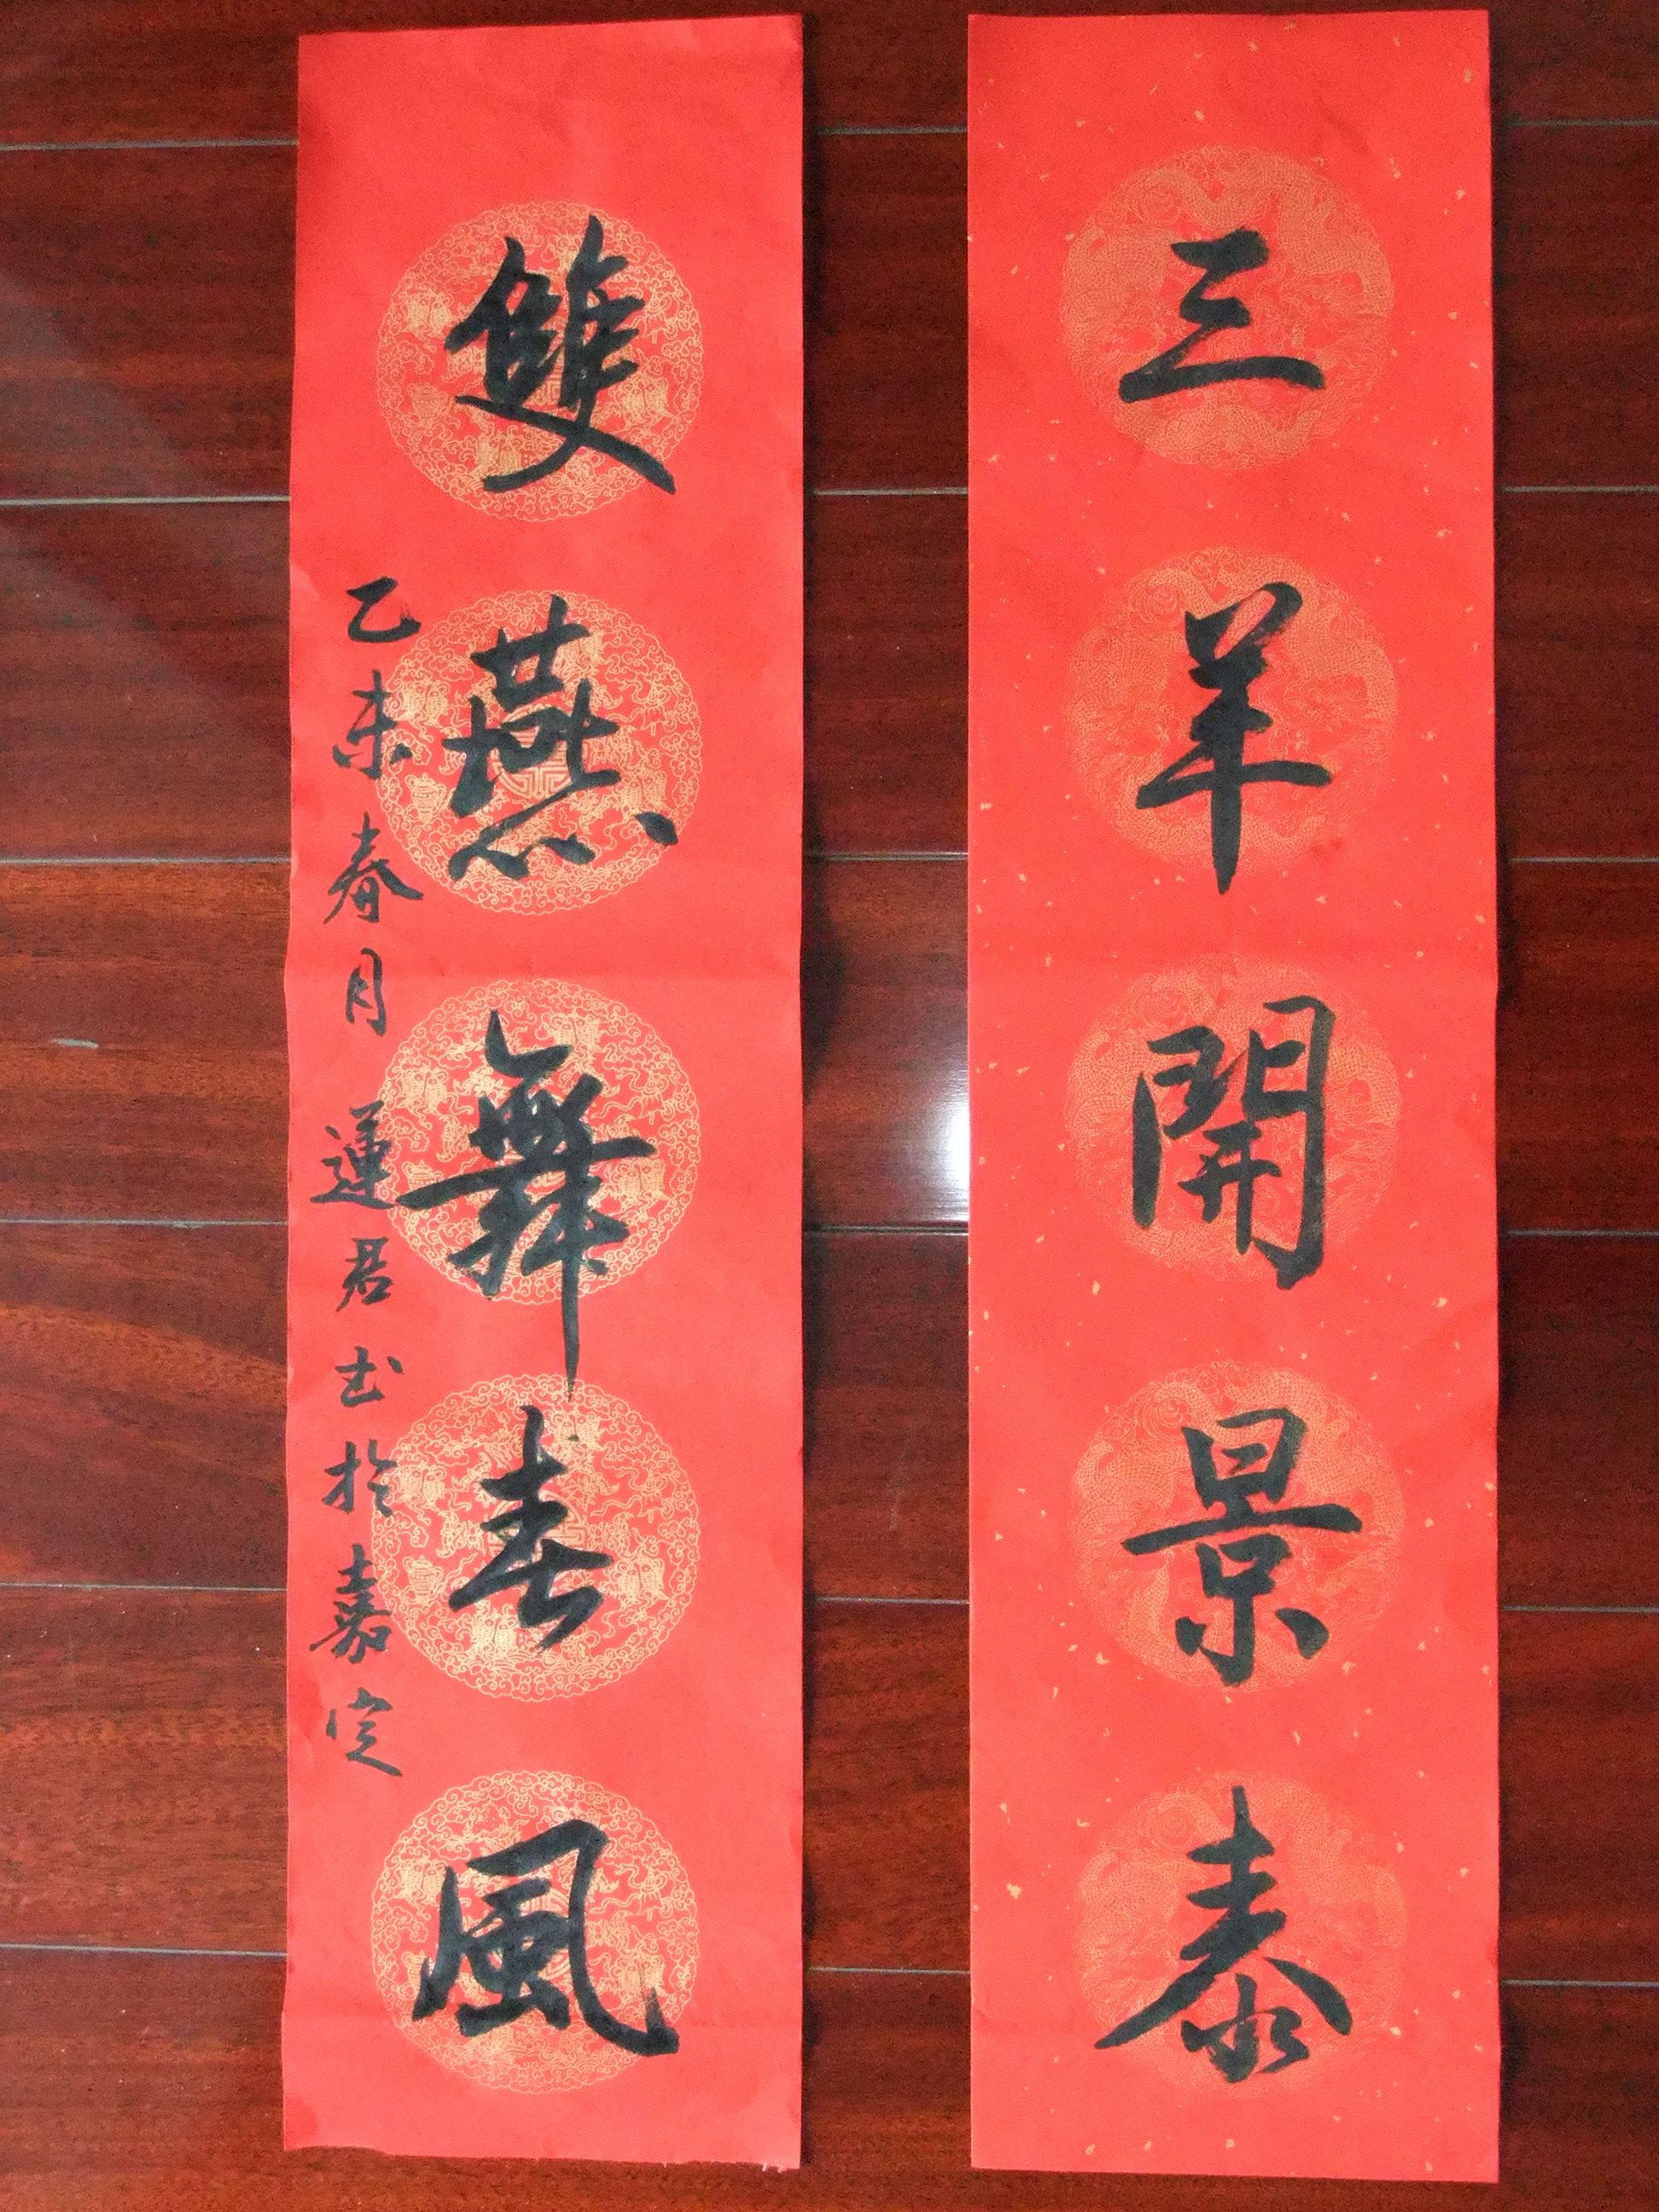 三羊開景泰
雙燕舞春風
乙未春月蓮君书於嘉定